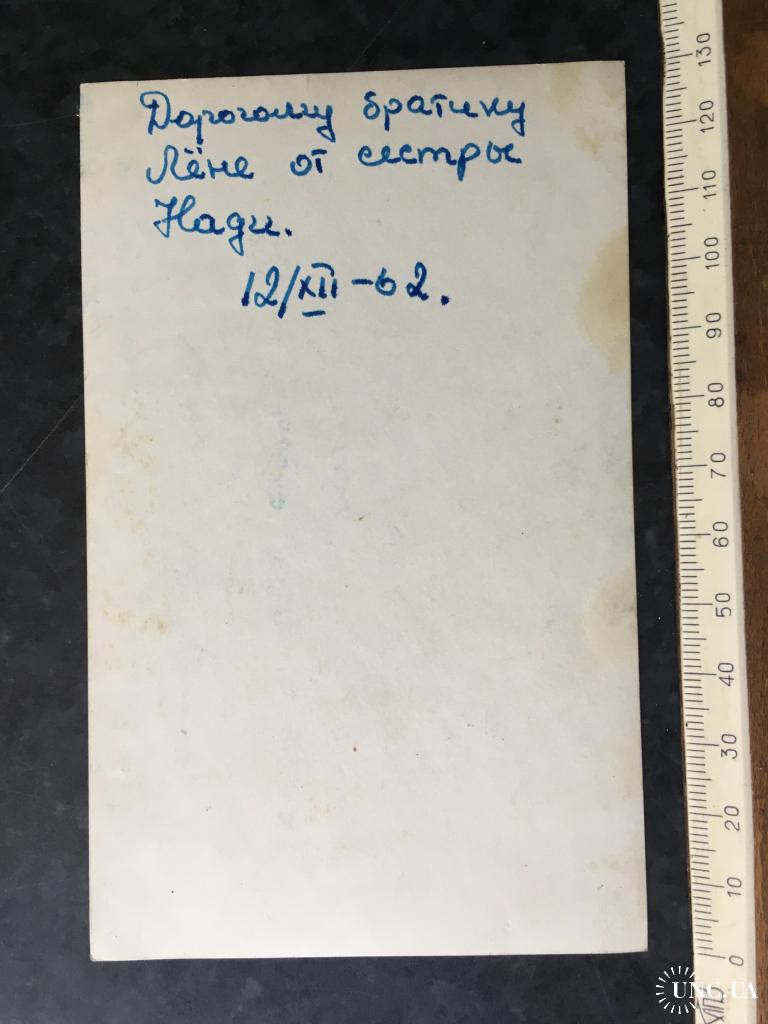 Дорогому братику
Лёне от сестры
Нади.
12/XII-62.
130
120
110
100
90
80
70
60
50
40
30
20
10
0
UNC.UA